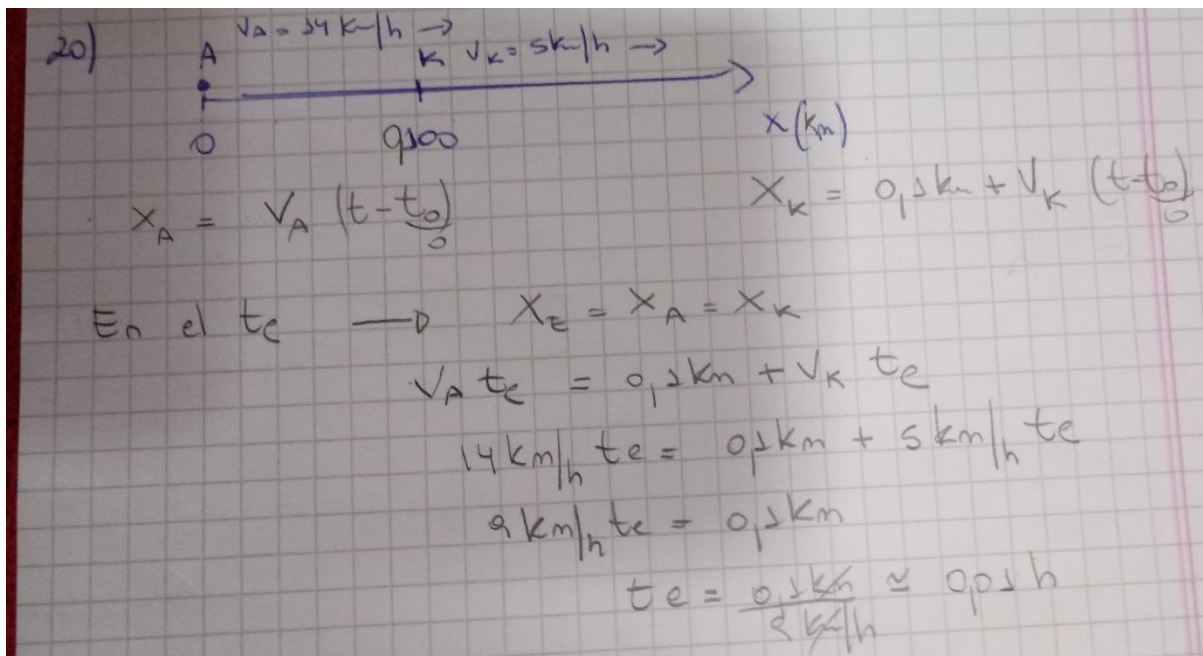 20) A VA = 14 km/h → K VK = 5 km/h →
0 0,100 X (km)
XA = VA (t - t0) 0 XK = 0,1 km + VK (t - t0) 0
En el te → XE = XA = XK
VA te = 0,1 km + VK te
14 km/h te = 0,1 km + 5 km/h te
9 km/h te = 0,1 km
te = 0,1 km / 9 km/h ≃ 0,01 h